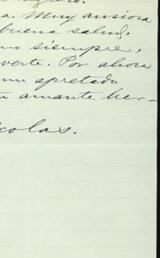 a. Muy ansiosa
buena salud,
mo siempre,
verte. Por ahora
un apretado
amante her-
colas.